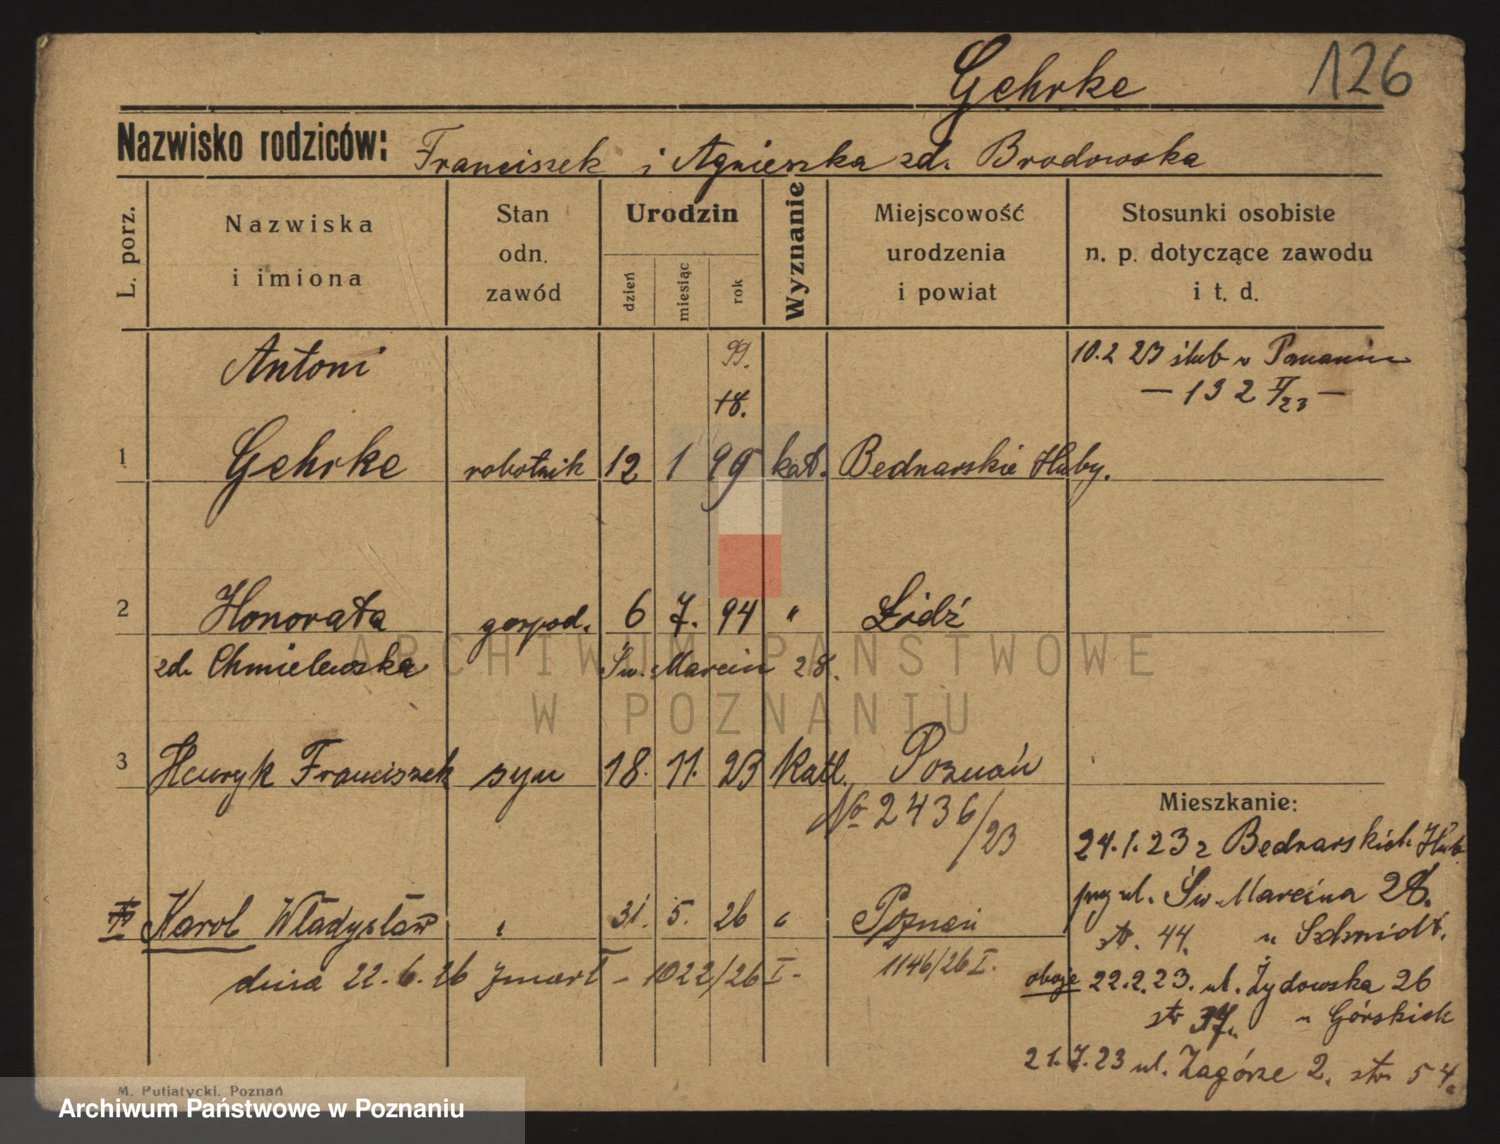 Gehrke
126
Nazwisko rodziców: Franciszek i Agnieszka zd. Brodowska
L. porz.
Nazwiska i imiona
Stan odn. zawód
Urodzin
dzień
miesiąc
rok
Wyznanie
Miejscowość urodzenia i powiat
Stosunki osobiste n. p. dotyczące zawodu i t. d.
Antoni
99.
18.
10.2 23 ślub w Poznaniu
— 132 II/23 —
1 Gehrke robotnik 12 1 99 kat. Bednarskie Huby.
2 Honorata gospod. 6 7. 94 " Łódź
zd. Chmielewska Św. Marcin 28.
ARCHIWUM PAŃSTWOWE
W POZNANIU
3 Henryk Franciszek syn 18. 11. 23 katl. Poznań
No 2436/23
Mieszkanie:
24.1.23 z Bednarskich Hub
przy ul. Św. Marcina 28.
str. 44. u Schmidt.
Karol Władysław " 31. 5. 26 " Poznań
1146/26 I.
dnia 22.6.26 zmarł – 1022/26 I –
oboje 22.2.23. ul. Żydowska 26
str 37. u Górskich
21.7.23 ul. Zagórze 2. str. 54.
M. Putiatycki, Poznań
Archiwum Państwowe w Poznaniu